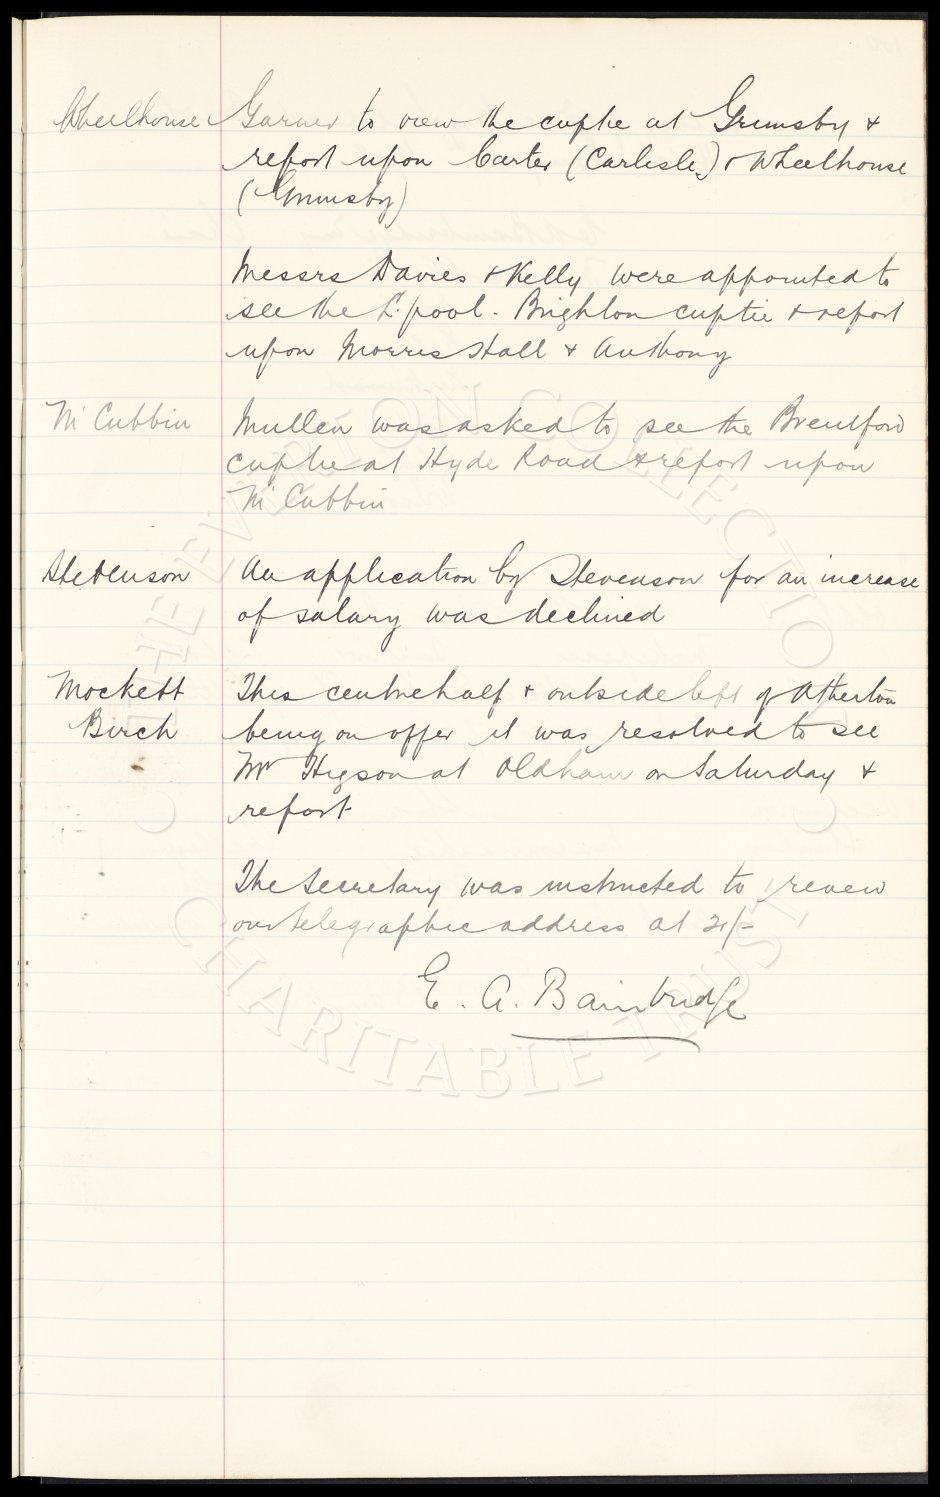 Wheelhouse Garner to view the cuptie at Grimsby &
report upon Carter (Carlisle) & Wheelhouse
(Grimsby)
Messrs Davies & Kelly were appointed to
see the L'pool - Brighton cuptie & report
upon Morris Hall & Anthony
McCubbin Mullen was asked to see the Brentford
cuptie at Hyde Road & report upon
McCubbin
Stevenson An application by Stevenson for an increase
of salary was declined
Mockett This centrehalf & outside left of Atherton
Birch being on offer it was resolved to see
Mr Higson at Oldham on Saturday &
report.
The Secretary was instructed to renew
our telegraphic address at 21/-
E. A. Bainbridge
THE EVERTON COLLECTION
CHARITABLE TRUST